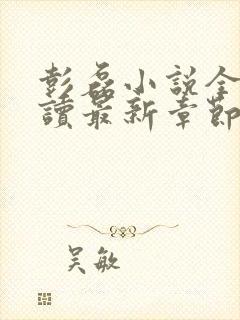 彭磊小說全
讀最新章節
吴敏